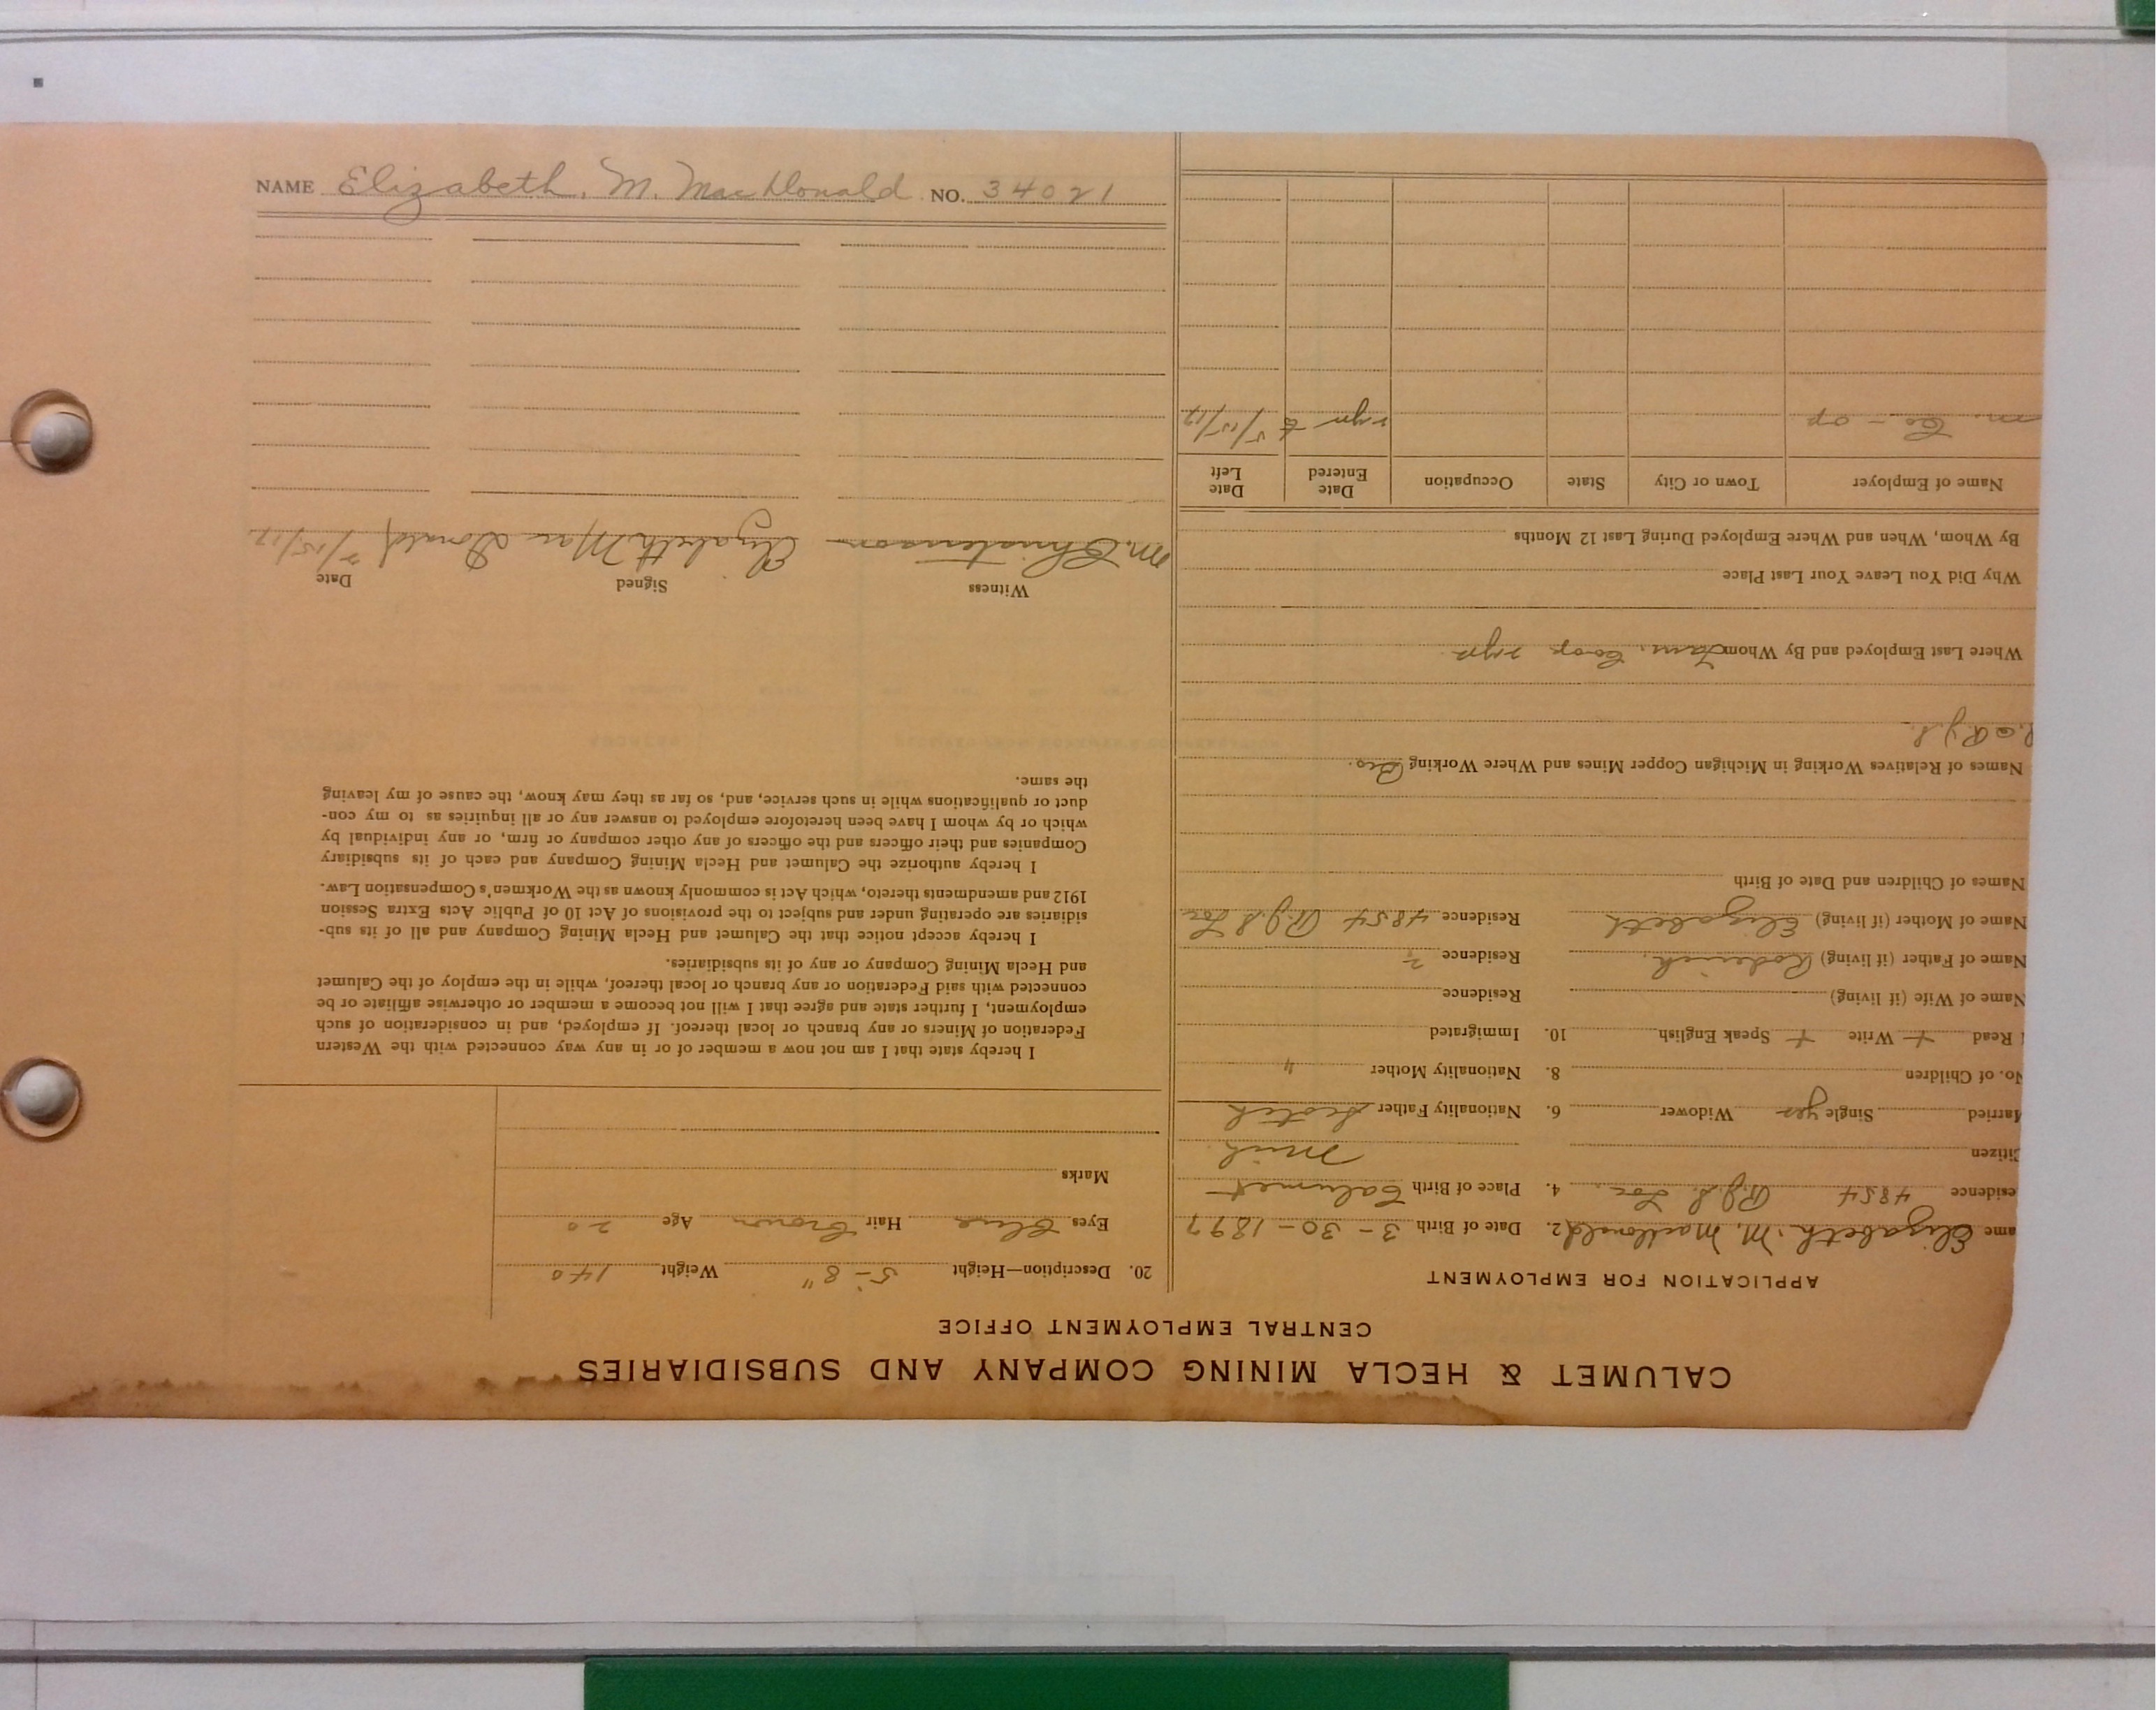 NAME Elizabeth. M. MacDonald NO. 34021
CALUMET & HECLA MINING COMPANY AND SUBSIDIARIES
CENTRAL EMPLOYMENT OFFICE
APPLICATION FOR EMPLOYMENT
ame Elizabeth. M. MacDonald 2. Date of Birth 3-30-1897
esidence 4854 R.J.S. Loc. 4. Place of Birth Calumet
Citizen Mich
Married Single yes Widower 6. Nationality Father Scotch
No. of Children 8. Nationality Mother "
Read + Write + Speak English 10. Immigrated
Name of Wife (if living) Residence
Name of Father (if living) Roderick. Residence
Name of Mother (if living) Elizabeth Residence 4854 R.J.S Loc
Names of Children and Date of Birth
Names of Relatives Working in Michigan Copper Mines and Where Working
Where Last Employed and By Whom Tam. Coop
Why Did You Leave Your Last Place
By Whom, When and Where Employed During Last 12 Months
Name of Employer Town or City State Occupation Date Entered Date Left
m. Co-op to 5/15/17
20. Description—Height 5-8" Weight 140
Eyes Blue Hair Brown Age 20
Marks
I hereby state that I am not now a member of or in any way connected with the Western
Federation of Miners or any branch or local thereof. If employed, and in consideration of such
employment, I further state and agree that I will not become a member or otherwise affiliate or be
connected with said Federation or any branch or local thereof, while in the employ of the Calumet
and Hecla Mining Company or any of its subsidiaries.
I hereby accept notice that the Calumet and Hecla Mining Company and all of its sub-
sidiaries are operating under and subject to the provisions of Act 10 of Public Acts Extra Session
1912 and amendments thereto, which Act is commonly known as the Workmen's Compensation Law.
I hereby authorize the Calumet and Hecla Mining Company and each of its subsidiary
Companies and their officers and the officers of any other company or firm, or any individual by
which or by whom I have been heretofore employed to answer any or all inquiries as to my con-
duct or qualifications while in such service, and, so far as they may know, the cause of my leaving
the same.
Witness Signed Date
M. Christenson Elizabeth Mac Donald 5/15/17